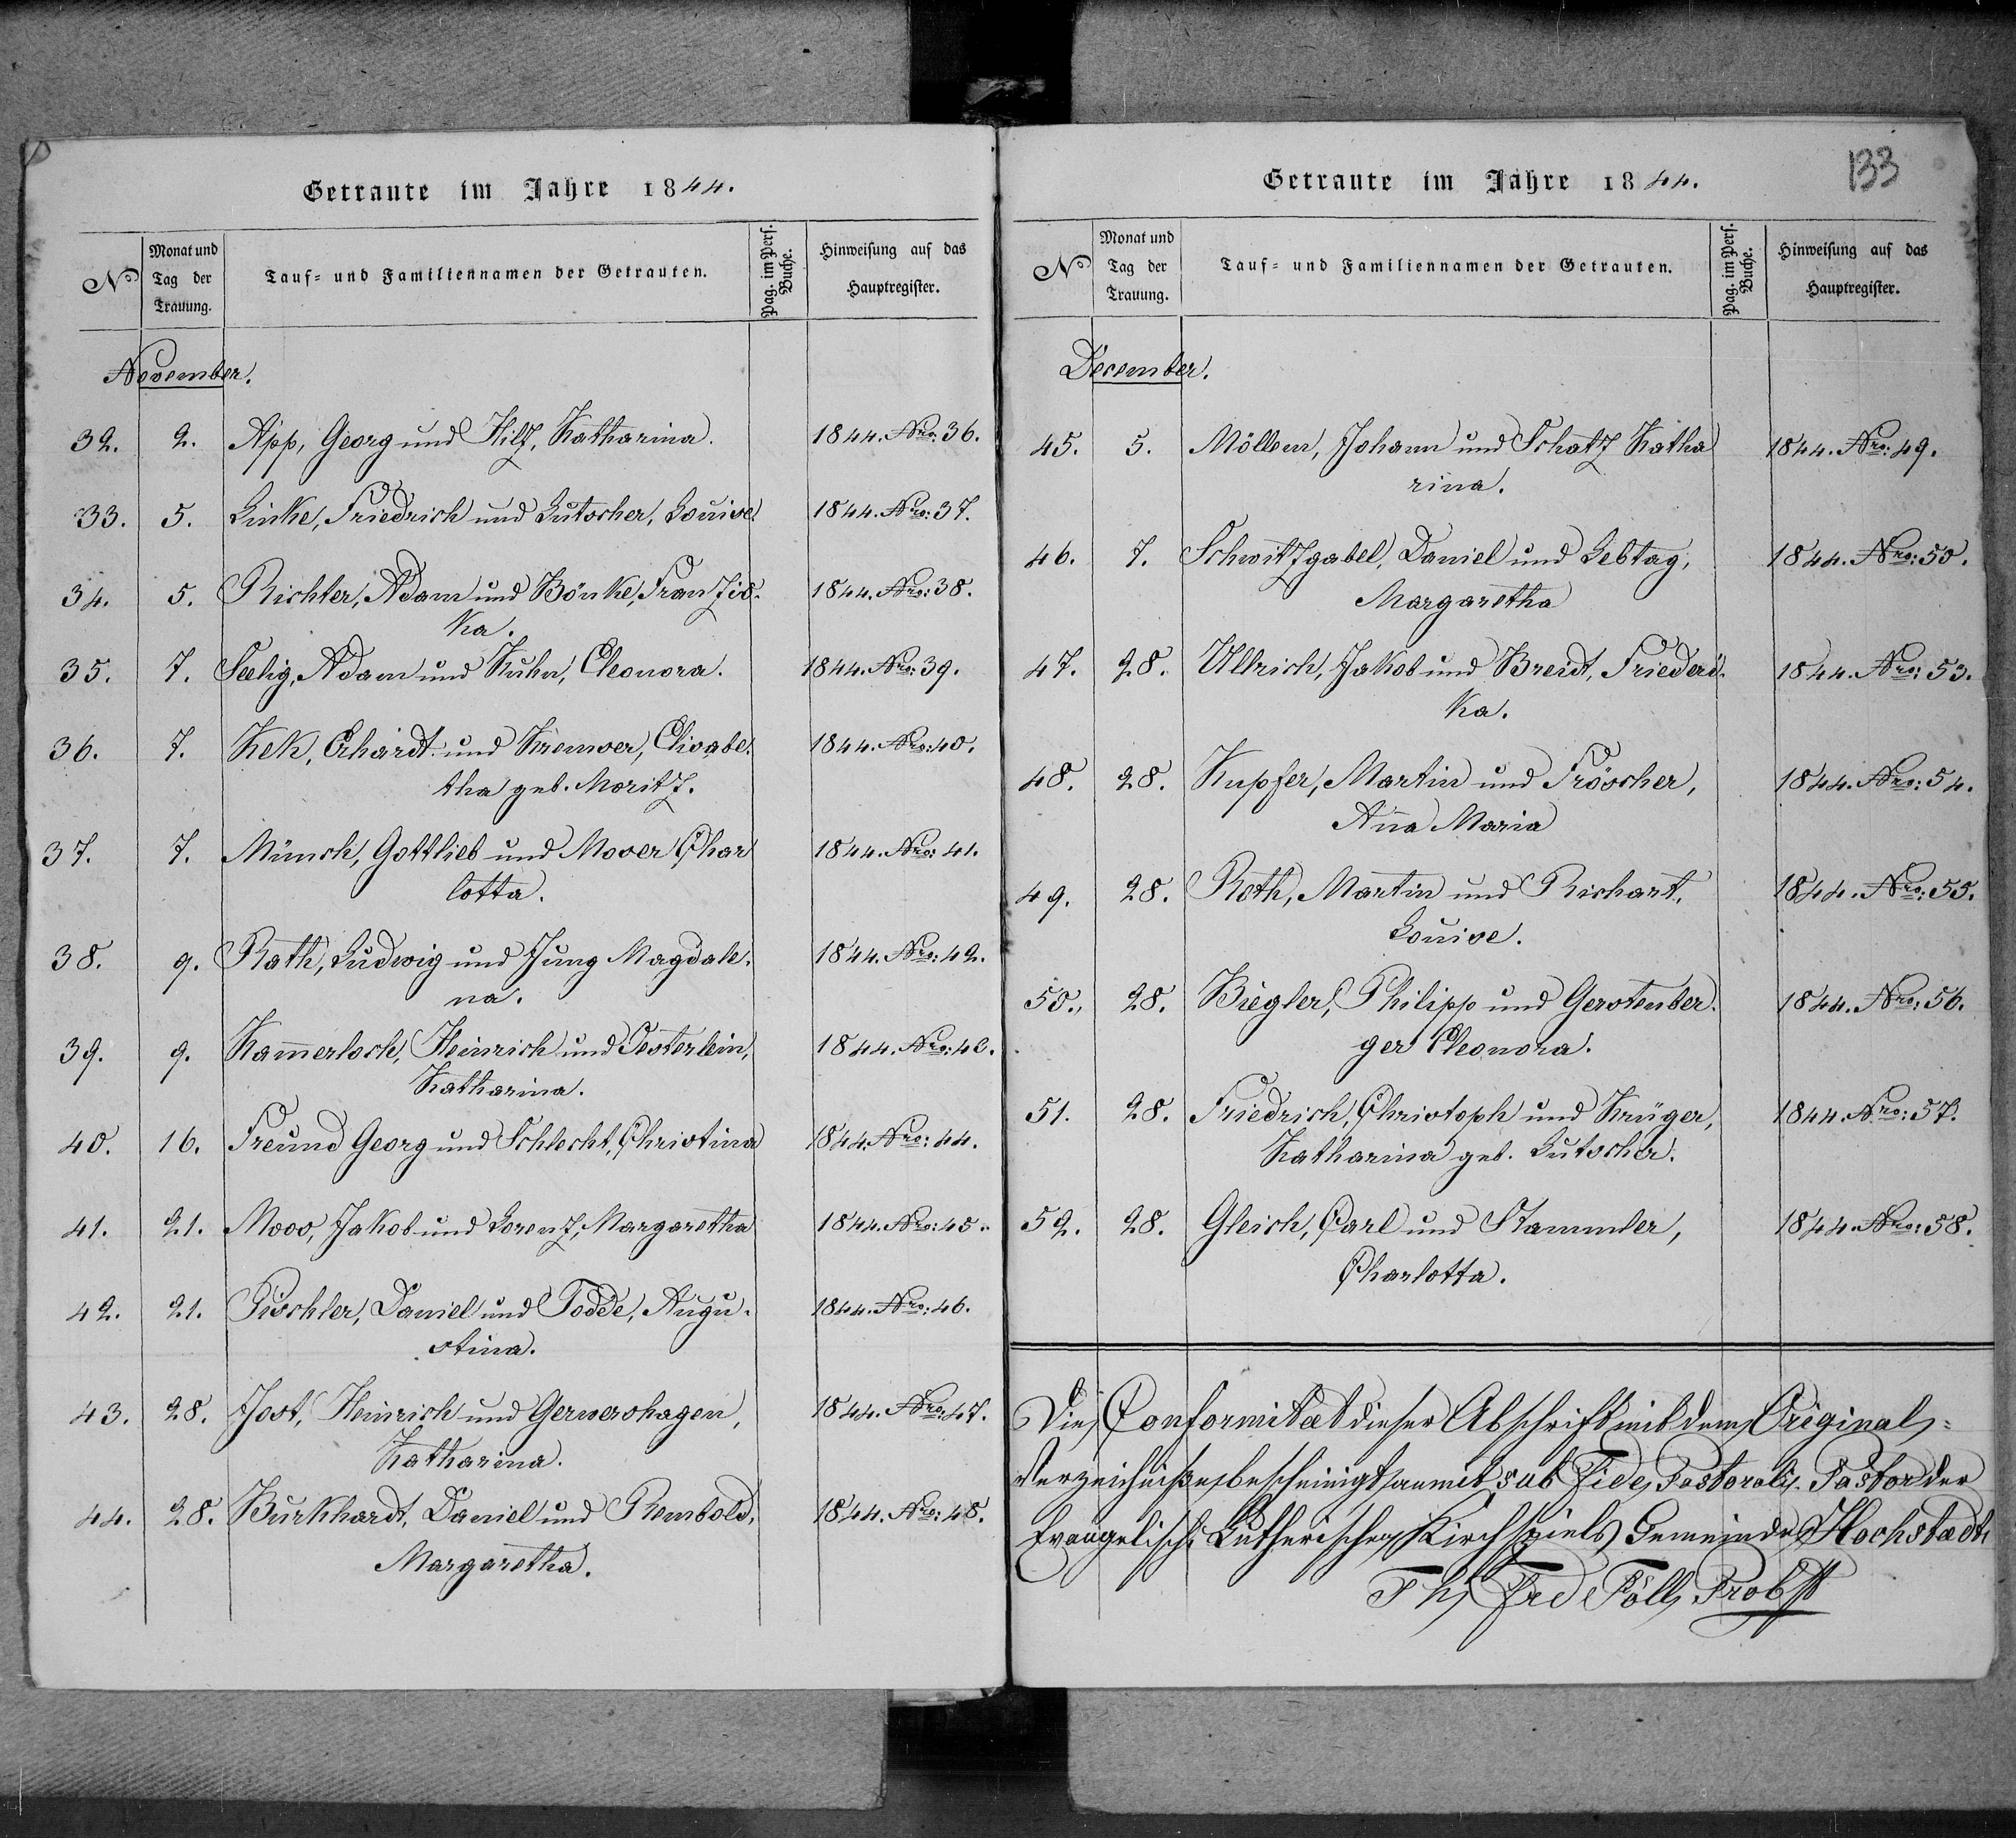 Getraute im Jahre 1844.
No
Monat und
Tag der
Trauung.
Tauf- und Familiennamen der Getrauten.
Pag. im Pers.
Buche.
Hinweisung auf das
Hauptregister.
November.
32. 2. App, Georg und Hilz, Katharina. 1844. Nro: 36.
33. 5. Linke, Friedrich und Lutscher, Louise. 1844. Nro: 37.
34. 5. Richter, Adam und Bönke, Franzis- 1844. Nro: 38.
ka.
35. 7. Seelig, Adam und Kuhn, Eleonora. 1844. Nro: 39.
36. 7. Kek, Erhardt und Kremser, Elisabe- 1844. Nro: 40.
tha geb. Moritz.
37. 7. Münch, Gottlieb und Moser Char 1844. Nro: 41.
lotta.
38. 9. Rath, Ludwig und Jung Magdale- 1844. Nro: 42.
na.
39. 9. Kam̄erloch, Heinrich und Oesterlein, 1844. Nro: 43.
Katharina.
40. 16. Freund Georg und Schlecht, Christina 1844. Nro: 44.
41. 21. Moos, Jakob und Lorenz, Margaretha 1844. Nro: 45.
42. 21. Tischler, Daniel und Todde, Augu- 1844. Nro: 46.
stina.
43. 28. Jost, Heinrich und Germershagen, 1844. Nro: 47.
Katharina.
44. 28. Burkhardt, Daniel und Rembold, 1844. Nro: 48.
Margaretha.
133
Getraute im Jahre 1844.
No
Monat und
Tag der
Trauung.
Tauf- und Familiennamen der Getrauten.
Pag. im Pers.
Buche.
Hinweisung auf das
Hauptregister.
December.
45. 5. Möllem, Johann und Schatz Katha 1844. Nro: 49.
rina.
46. 7. Schwitzgabel, Daniel und Lebtag, 1844. Nro: 50.
Margaretha
47. 28. Ullrich, Jakob und Breidt, Friederi- 1844. Nro: 53.
ka.
48. 28. Kupfer, Martin und Fröscher, 1844. Nro: 54.
An̄a Maria
49. 28. Roth, Martin und Richart, 1844. Nro: 55.
Louise.
50. 28. Biegler, Philipp und Gerstenber- 1844. Nro: 56.
ger Eleonora.
51. 28. Friedrich, Christoph und Krüger, 1844. Nro: 57.
Katharina geb. Lutscher.
52. 28. Gleich, Carl und Stammler, 1844. Nro: 58.
Charlotta.
Die Conformitæt dieser Abschrift mit dem Original-
Verzeichniße bescheinigt anmit sub Fide Pastorali. Pastor der
Evangelisch Lutherischen Kirchspiels Gemeinde Hochstædt
Frd Föll Probst